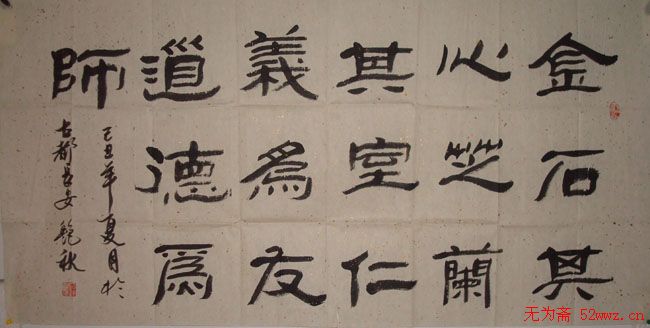 金石其
心芝蘭
其室仁
義為友
道德為
師
己丑年夏月於
古都長安 鲍秋
无为斋 52wwz.cn